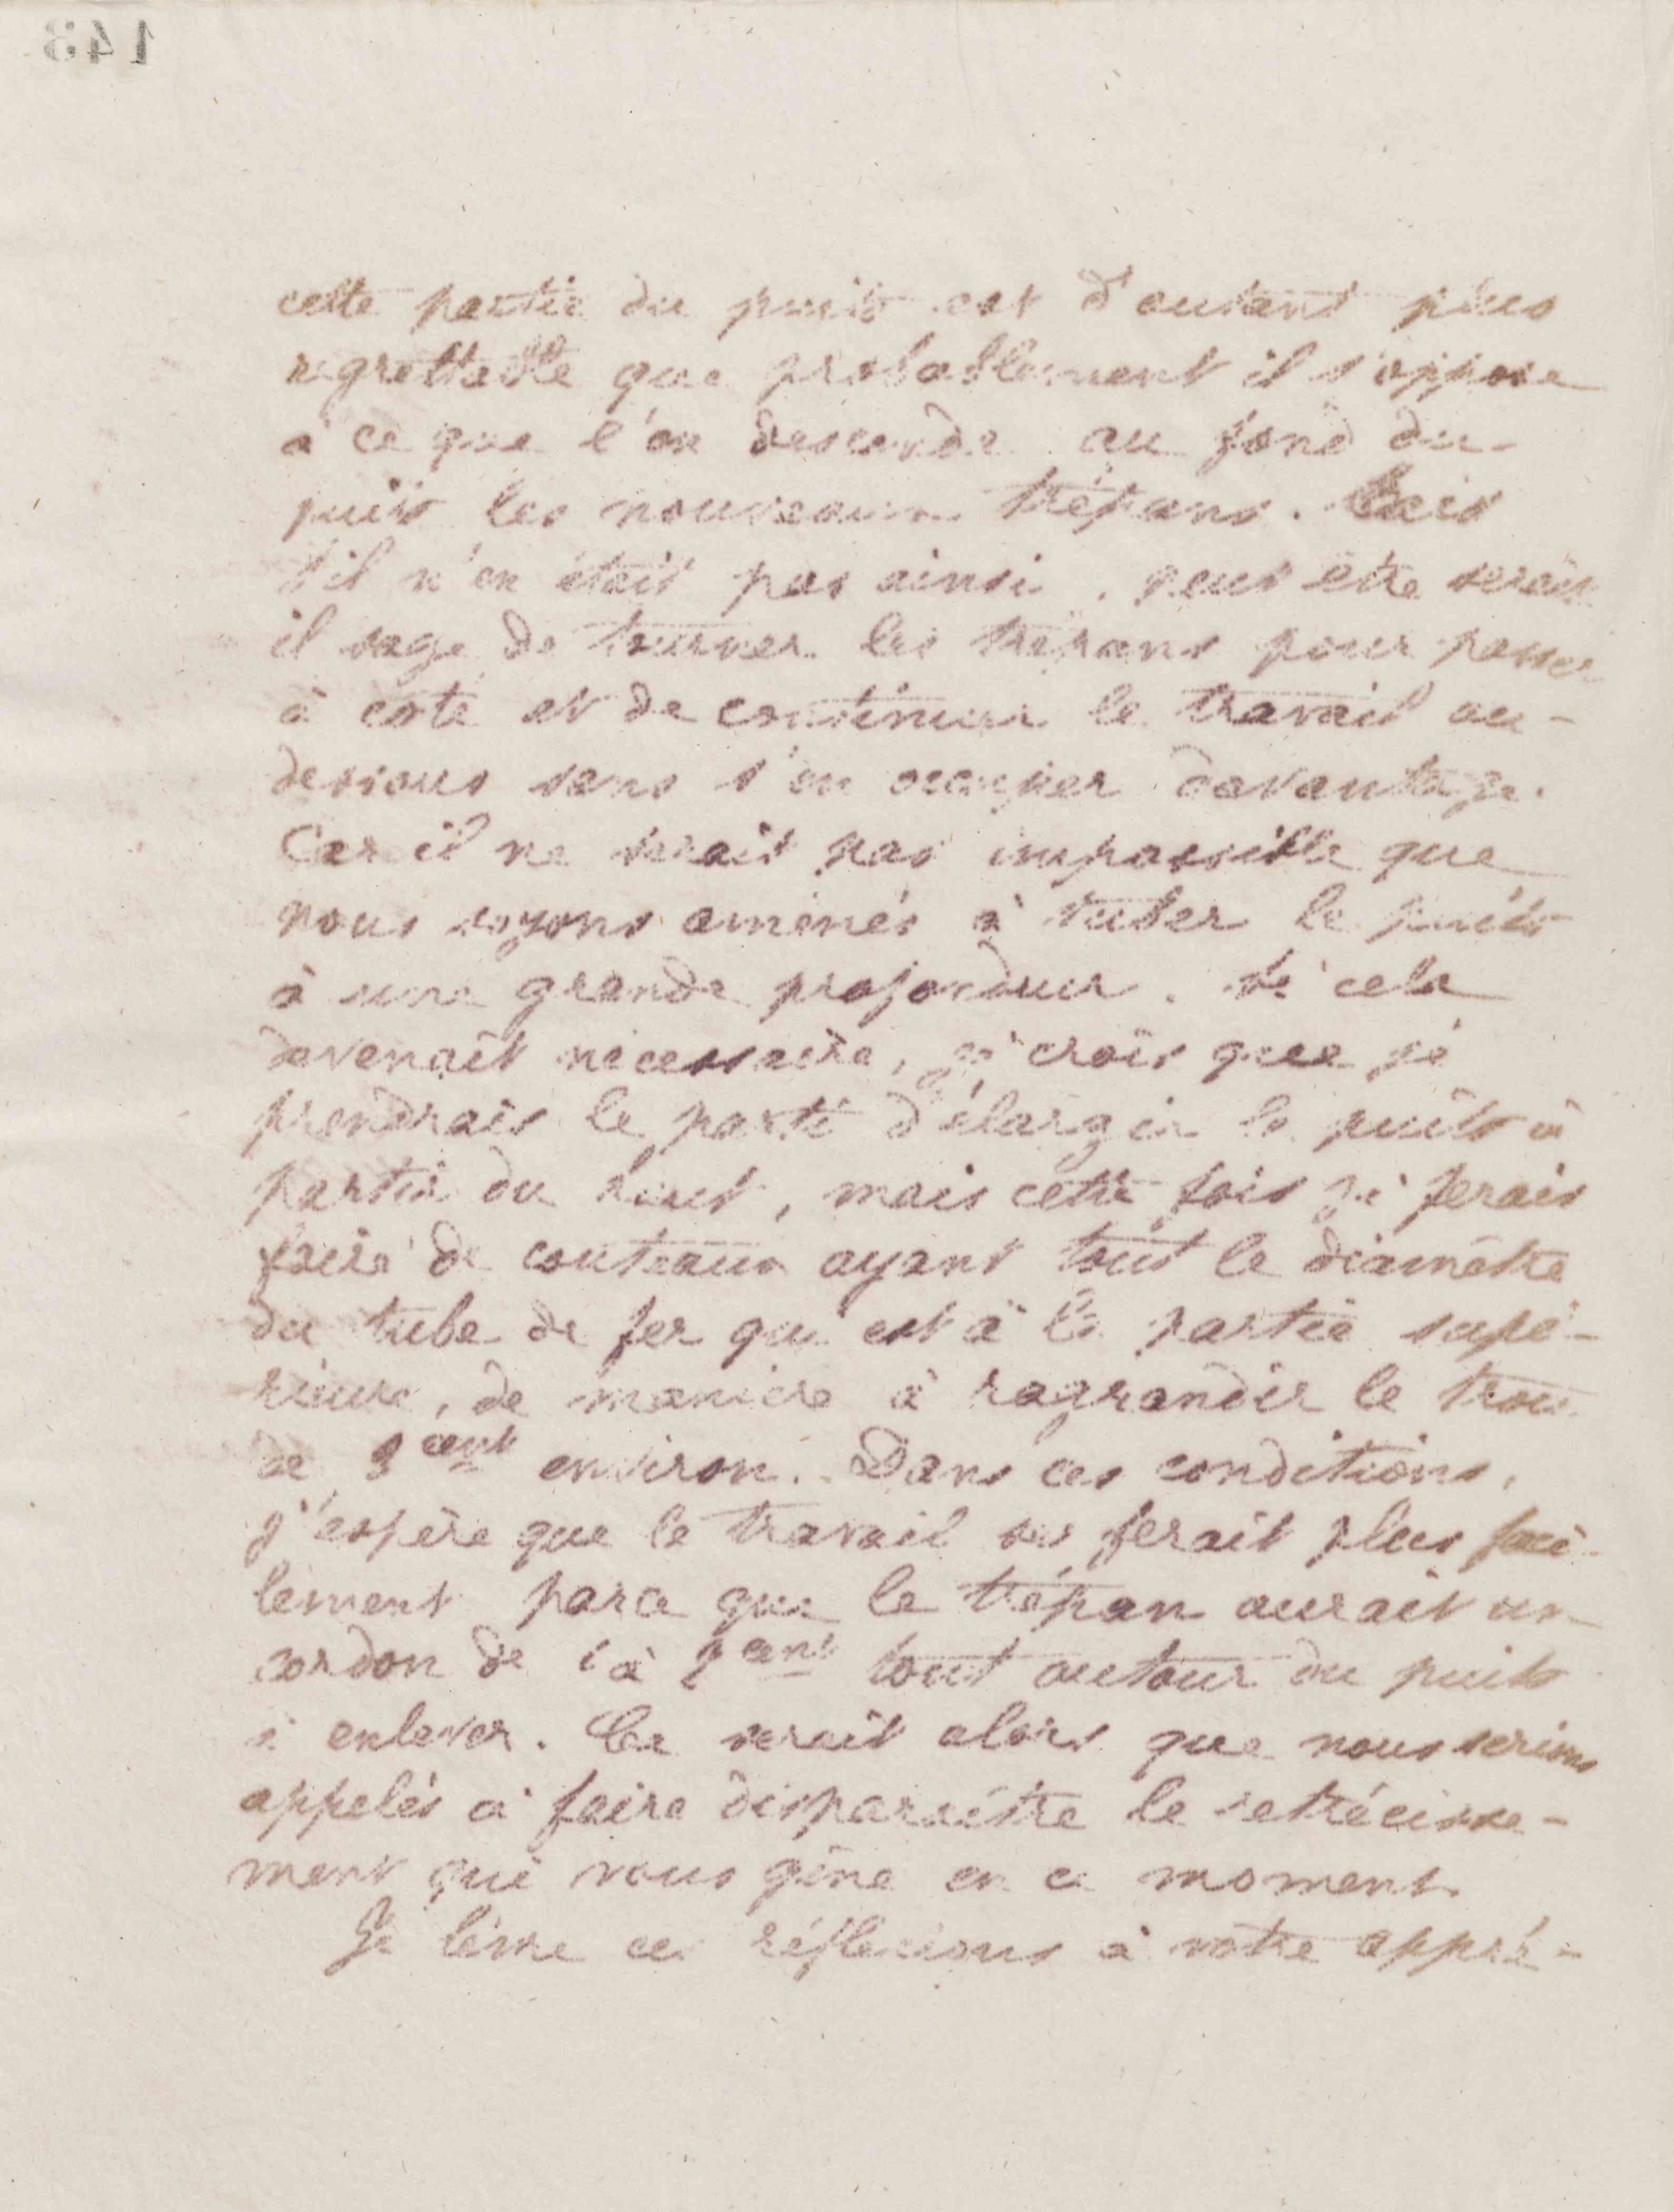 143
cette partie du puits est d'autant plus
regrettable que probablement il s'oppose
à ce que l'on descende au fond du
puits les nouveaux trépans. Mais
s'il n'en était pas ainsi, peut être serait
il sage de tourner les trépans pour passer
à coté et de continuer le travail au-
dessous sans s'en occuper davantage.
Car il ne serait pas impossible que
nous soyons amenés à tuber le puits
à une grande profondeur. Si cela
devenait nécessaire, je crois que je
prendrais le parti d'élargir le puits à
partir du haut, mais cette fois je ferais
faire de couteaux ayant tout le diamètre
du tube de fer qui est à la partie supé-
rieure, de manière à ragrandir le trou
de 3 cent environ. Dans ces conditions,
j'espère que le travail se ferait plus faci-
lement parce que le trépan aurait un
cordon de 1 à 2 cent tout autour du puits
à enlever. Ce serait alors que nous serions
appelés à faire disparaître le retrécisse-
ment qui nous gêne en ce moment.
Je livre ces réflexions à votre appré-